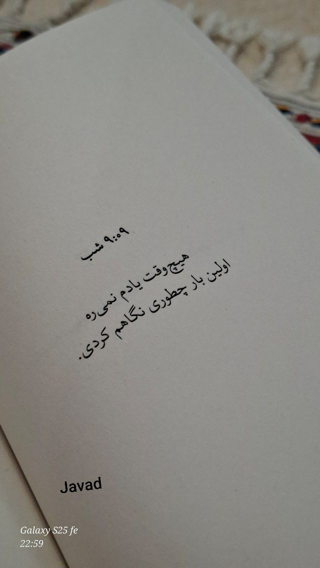 ۹:۰۹ شب
هیچ‌وقت یادم نمی‌ره
اولین بار چطوری نگاهم کردی.
Javad
Galaxy S25 fe
22:59